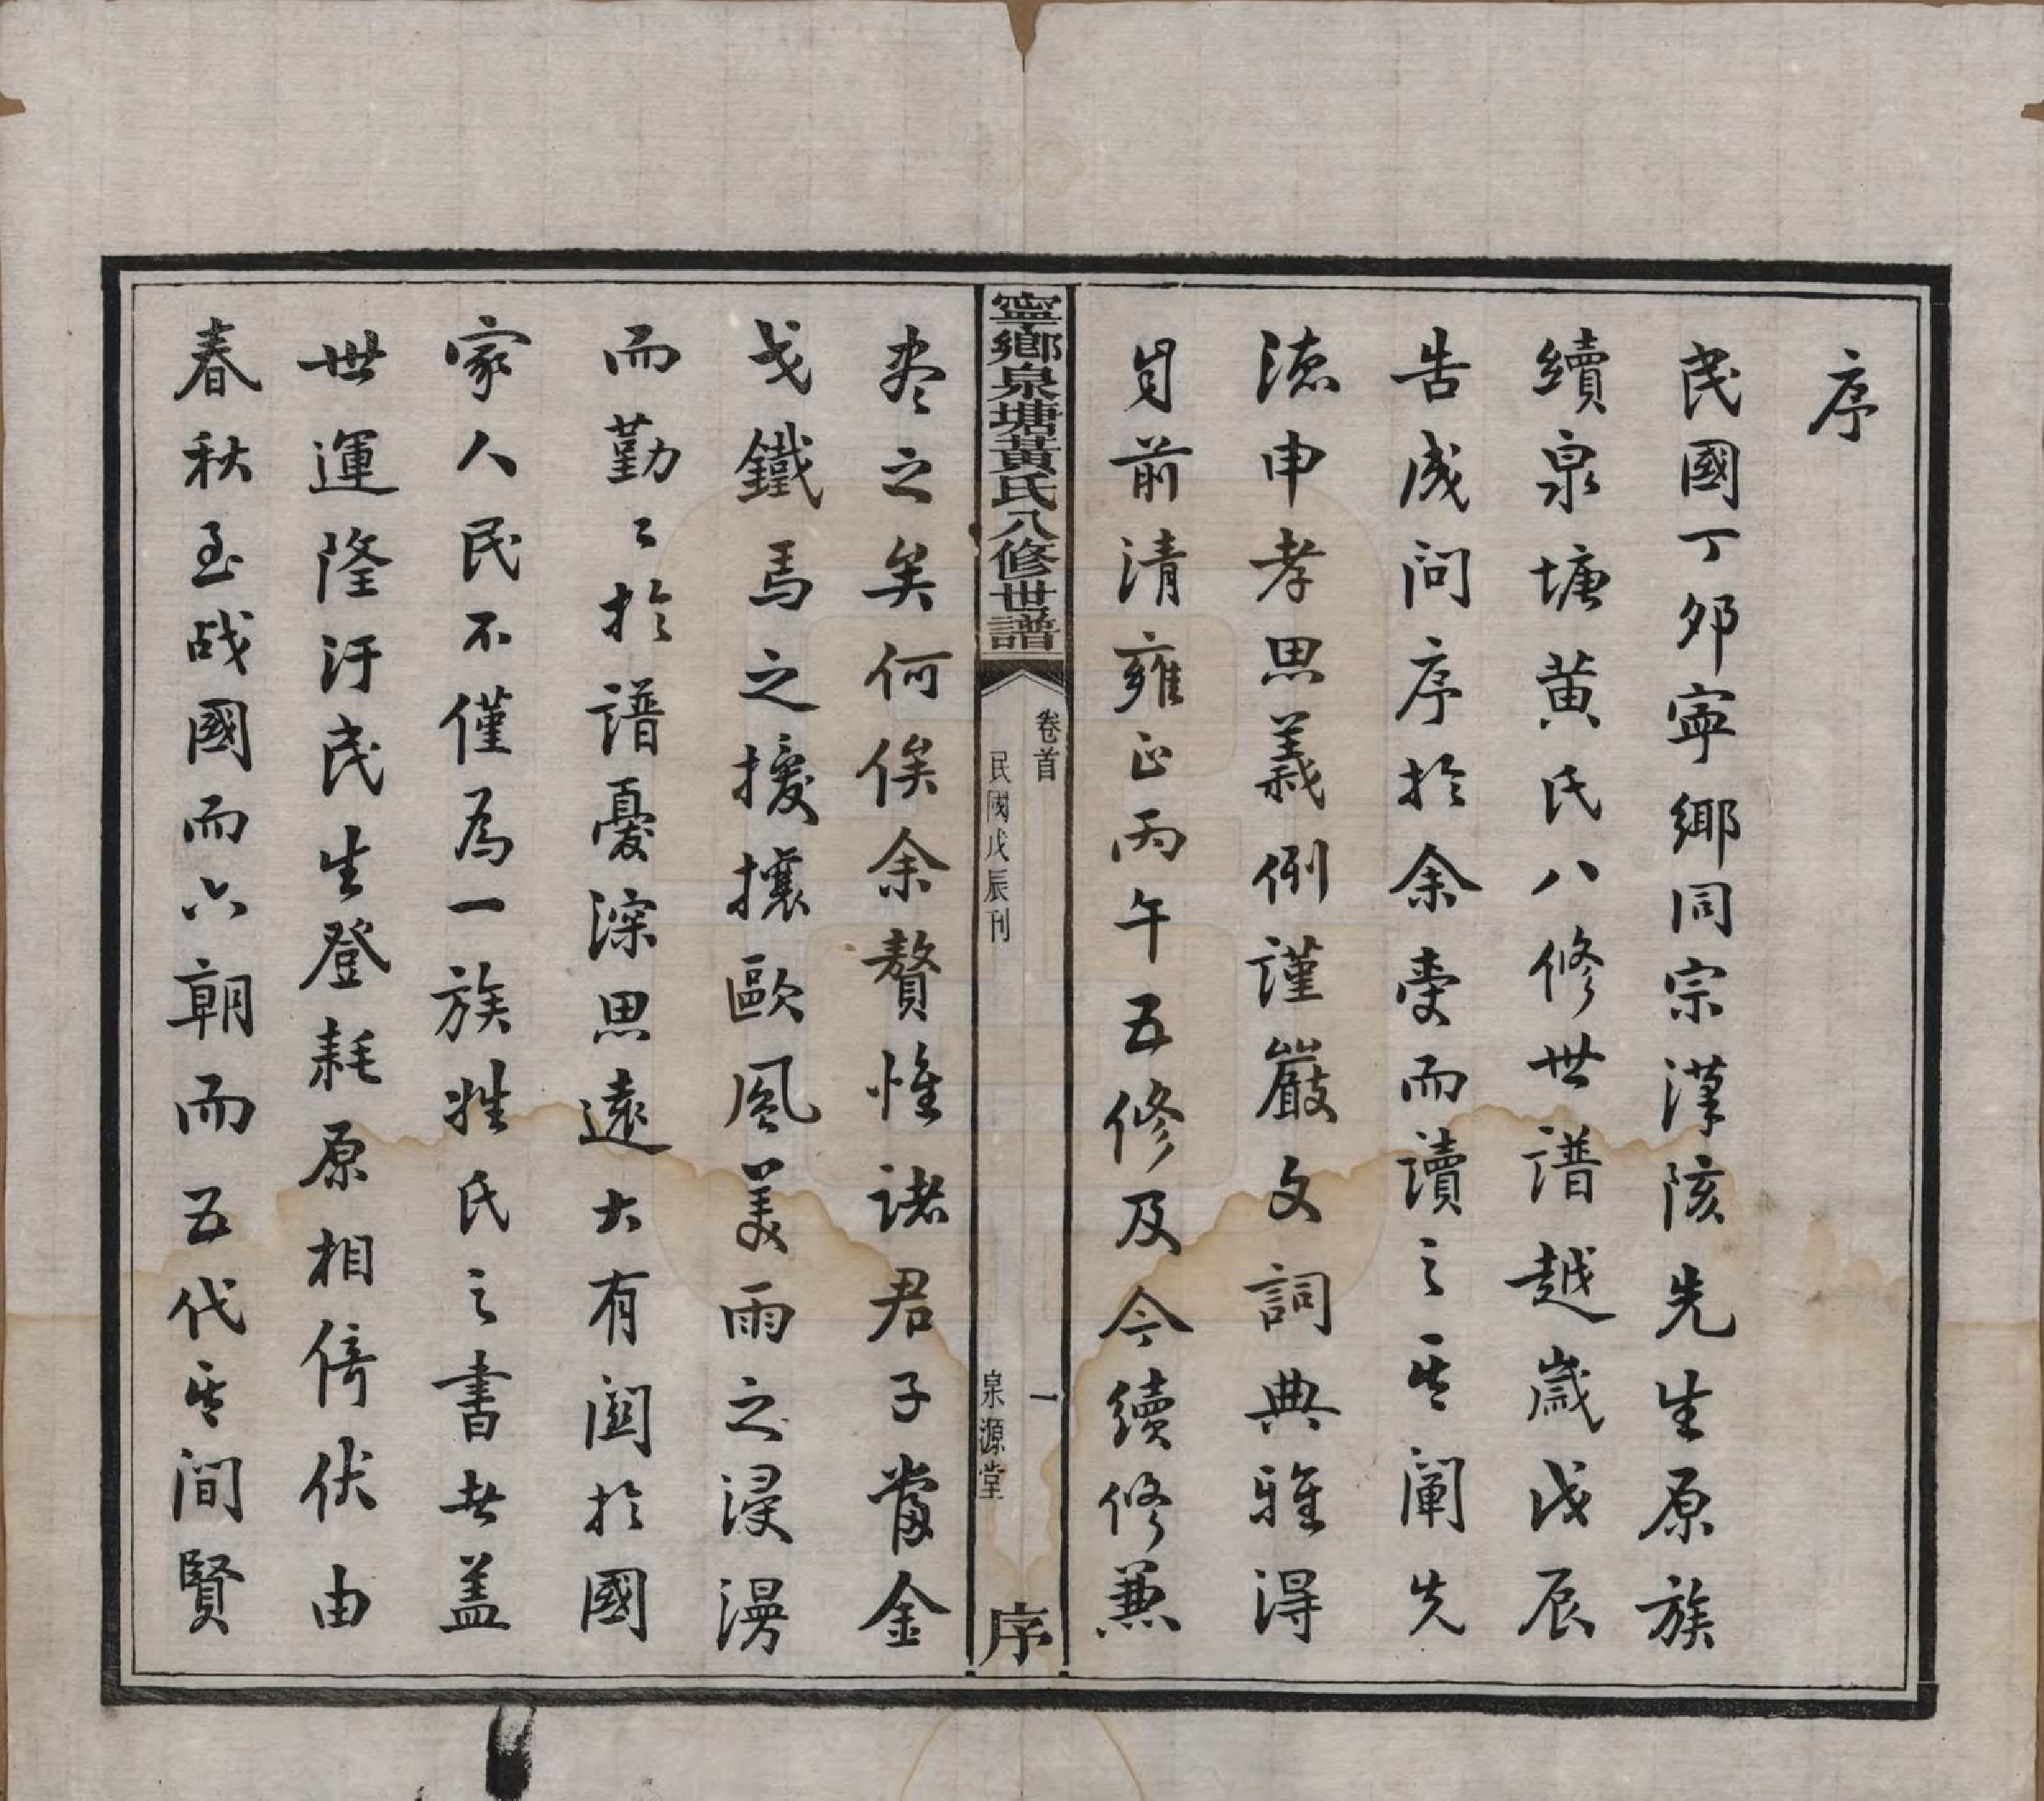 序
民國丁夘寧鄉同宗漢陔先生原族
續泉塘黄氏八修世譜越歲戊辰
告成问序於余受而讀之其闡先
德申孝思義例謹嚴文詞典雅得
自前清雍正丙午五修及今續修兼
寧鄉泉塘黃氏八修世譜
卷首
一
民國戊辰刊
泉源堂
序
盡之矣何俟余贅惟諸君子當金
戈鐵馬之擾攘歐風美雨之浸漫
而勤々於譜憂深思遠大有関於國
家人民不僅為一族姓氏之書者盖
世運隆汙民生登耗原相倚伏由
春秋至战國而六朝而五代其间賢